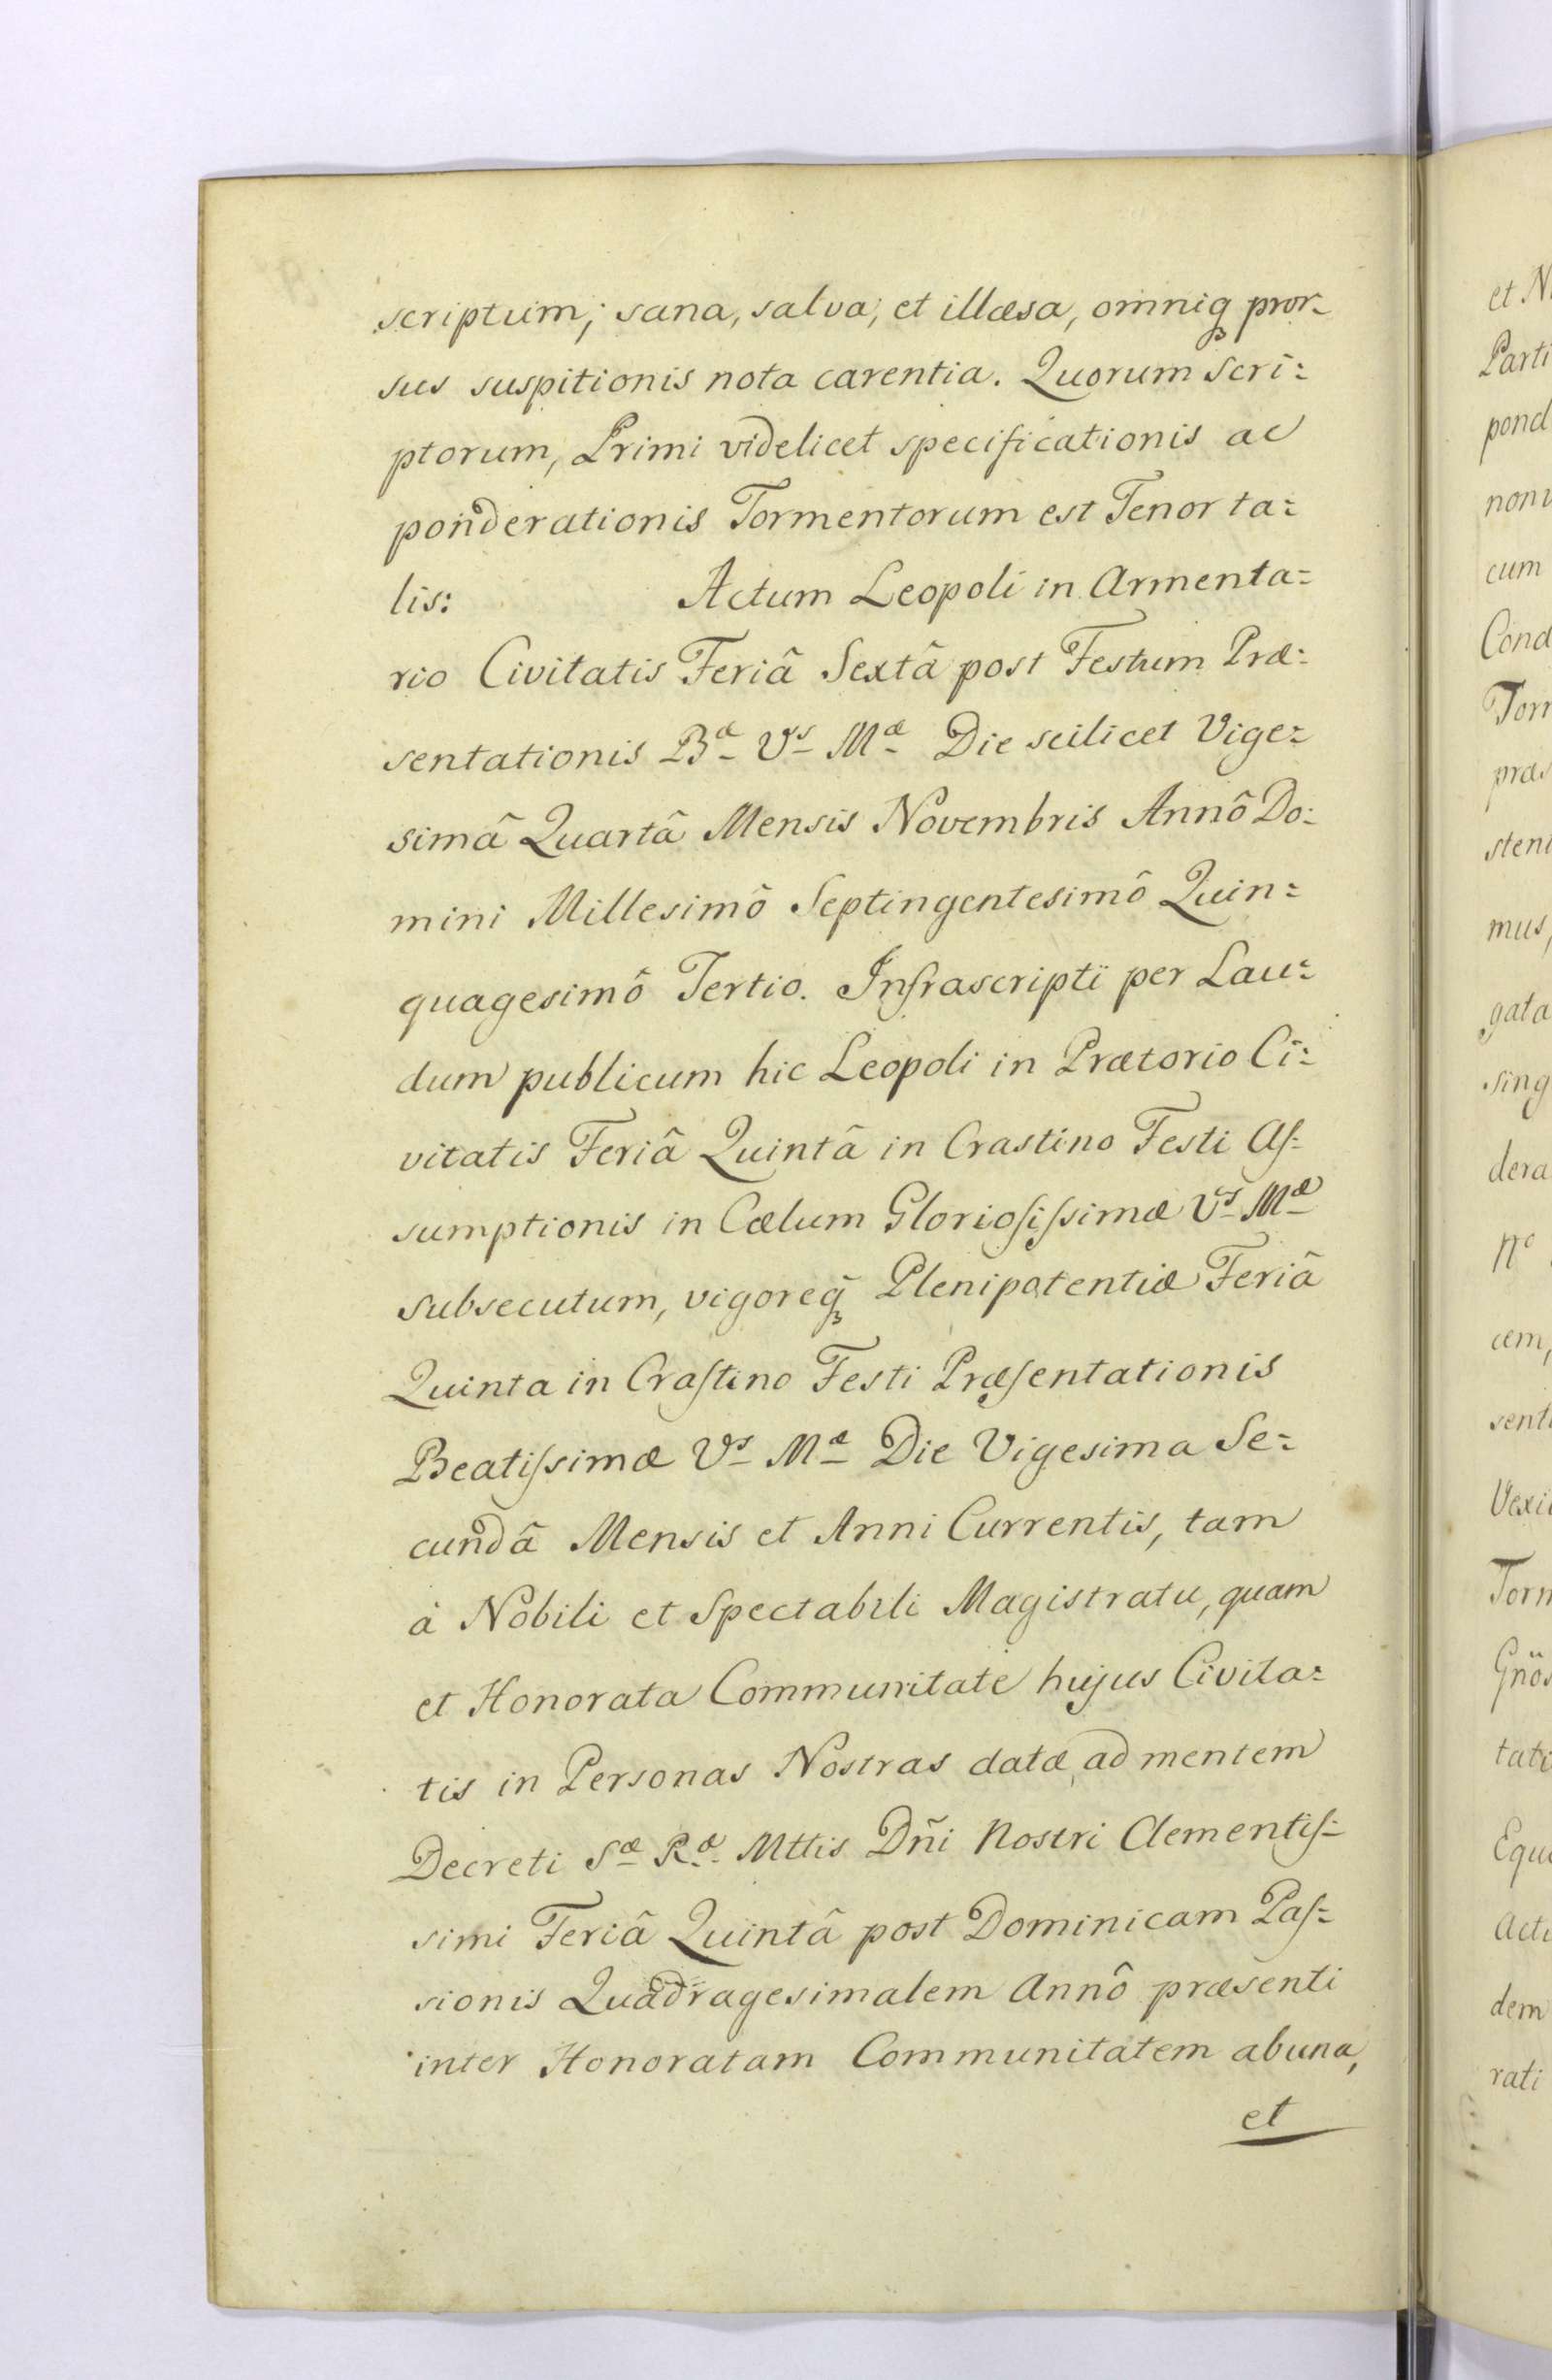 scriptum; sana, salva, et illæsa, omniqꝫ pror-
sus suspitionis nota carentia. Quorum Scri=
ptorum, Primi videlicet specificationis ac
ponderationis Tormentorum est Tenor ta=
lis: Actum Leopoli in Armenta=
rio Civitatis Feriâ Sextâ post Festum Præ=
sentationis Bæ Vs Mæ Die scilicet Vige=
simâ Quartâ Mensis Novembris Annô Do=
mini Millesimô Septingentesimô Quin=
quagesimô Tertio. Infrascripti per Lau=
dum publicum hic Leopoli in Prætorio Ci=
vitatis Feriâ Quintâ in Crastino Festi Aſ=
sumptionis in Cælum Glorioſiſsimæ Vs Mæ
subsecutum, vigoreqꝫ Plenipotentiæ Feriâ
Quinta in Craſtino Festi Præſentationis
Beatiſsimæ Vs Mæ Die Vigesima Se=
cundâ Mensis et Anni Currentis, tam
à Nobili et Spectabili Magistratu, quam
et Honorata Communitate hujus Civita=
tis in Personas Nostras datæ, ad mentem
Decreti Sæ Ræ Mttis Dñi Nostri Clementiſ=
simi Feriâ Quintâ post Dominicam Paſ=
sionis Quadragesimalem Annô præsenti
inter Honoratam Communitatem ab una,
et
et N
Parti
pond
non
cum
Cond
Torr
præs
sten
mus,
gata
sing
dera
N°
cem,
sent
Vexi
Torm
Gnos
tati
Equ
Act
dem
rati